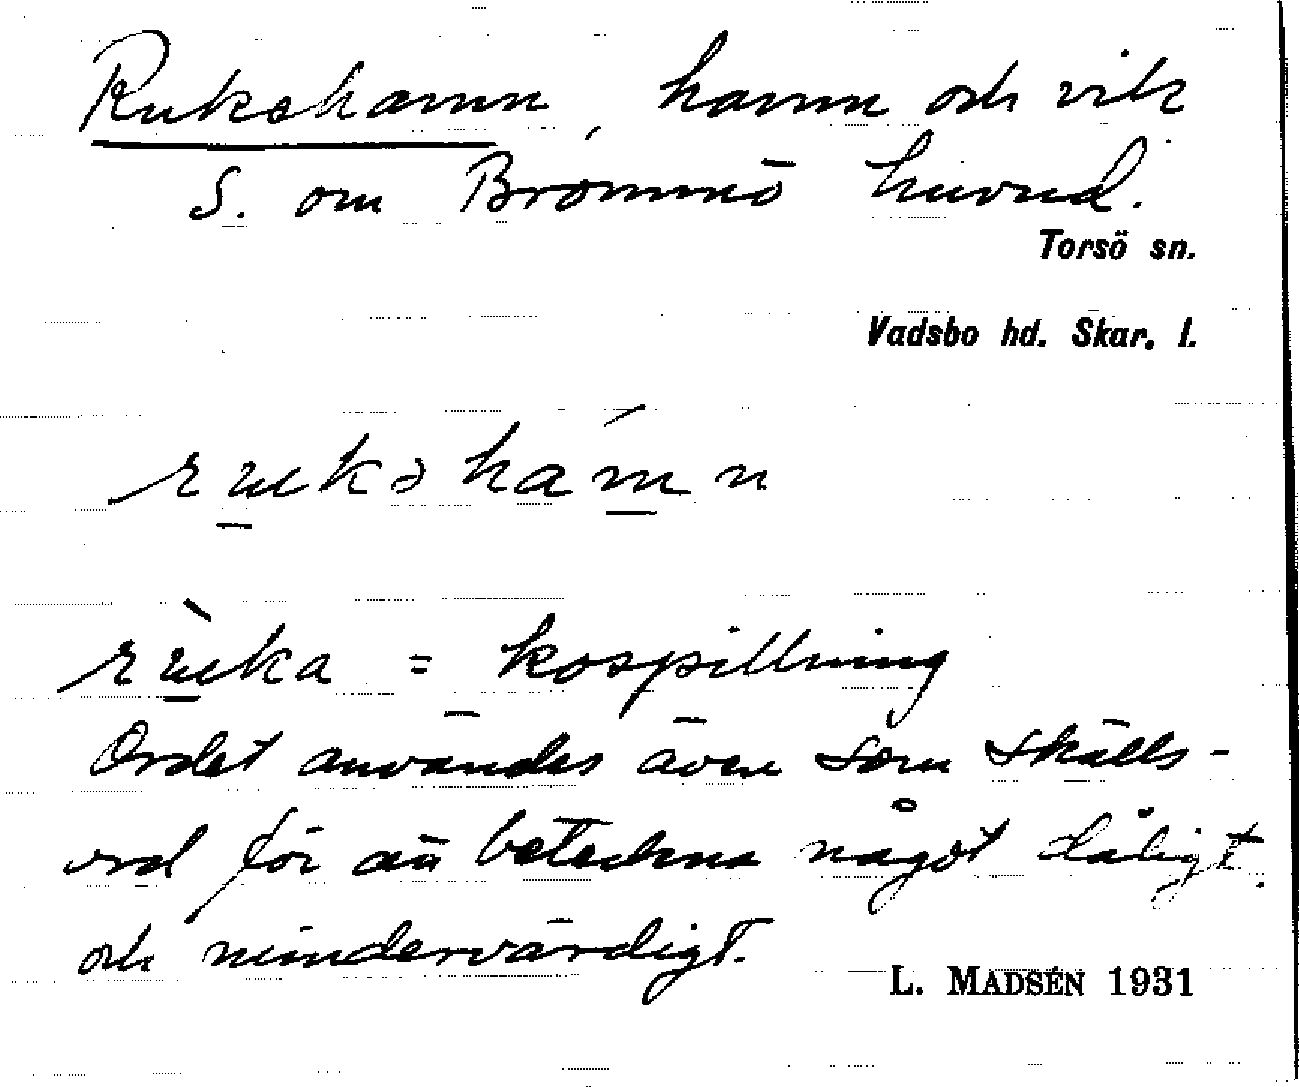 Rukshamn, hamn och vik
S. om Brommö huvud.
Torsö sn.
Vadsbo hd. Skar. l.
rukshámn
rùka = kospillning
Ordet användes även som skälls-
ord för att beteckna något dåligt
och mindervärdigt.
L. MADSÉN 1931